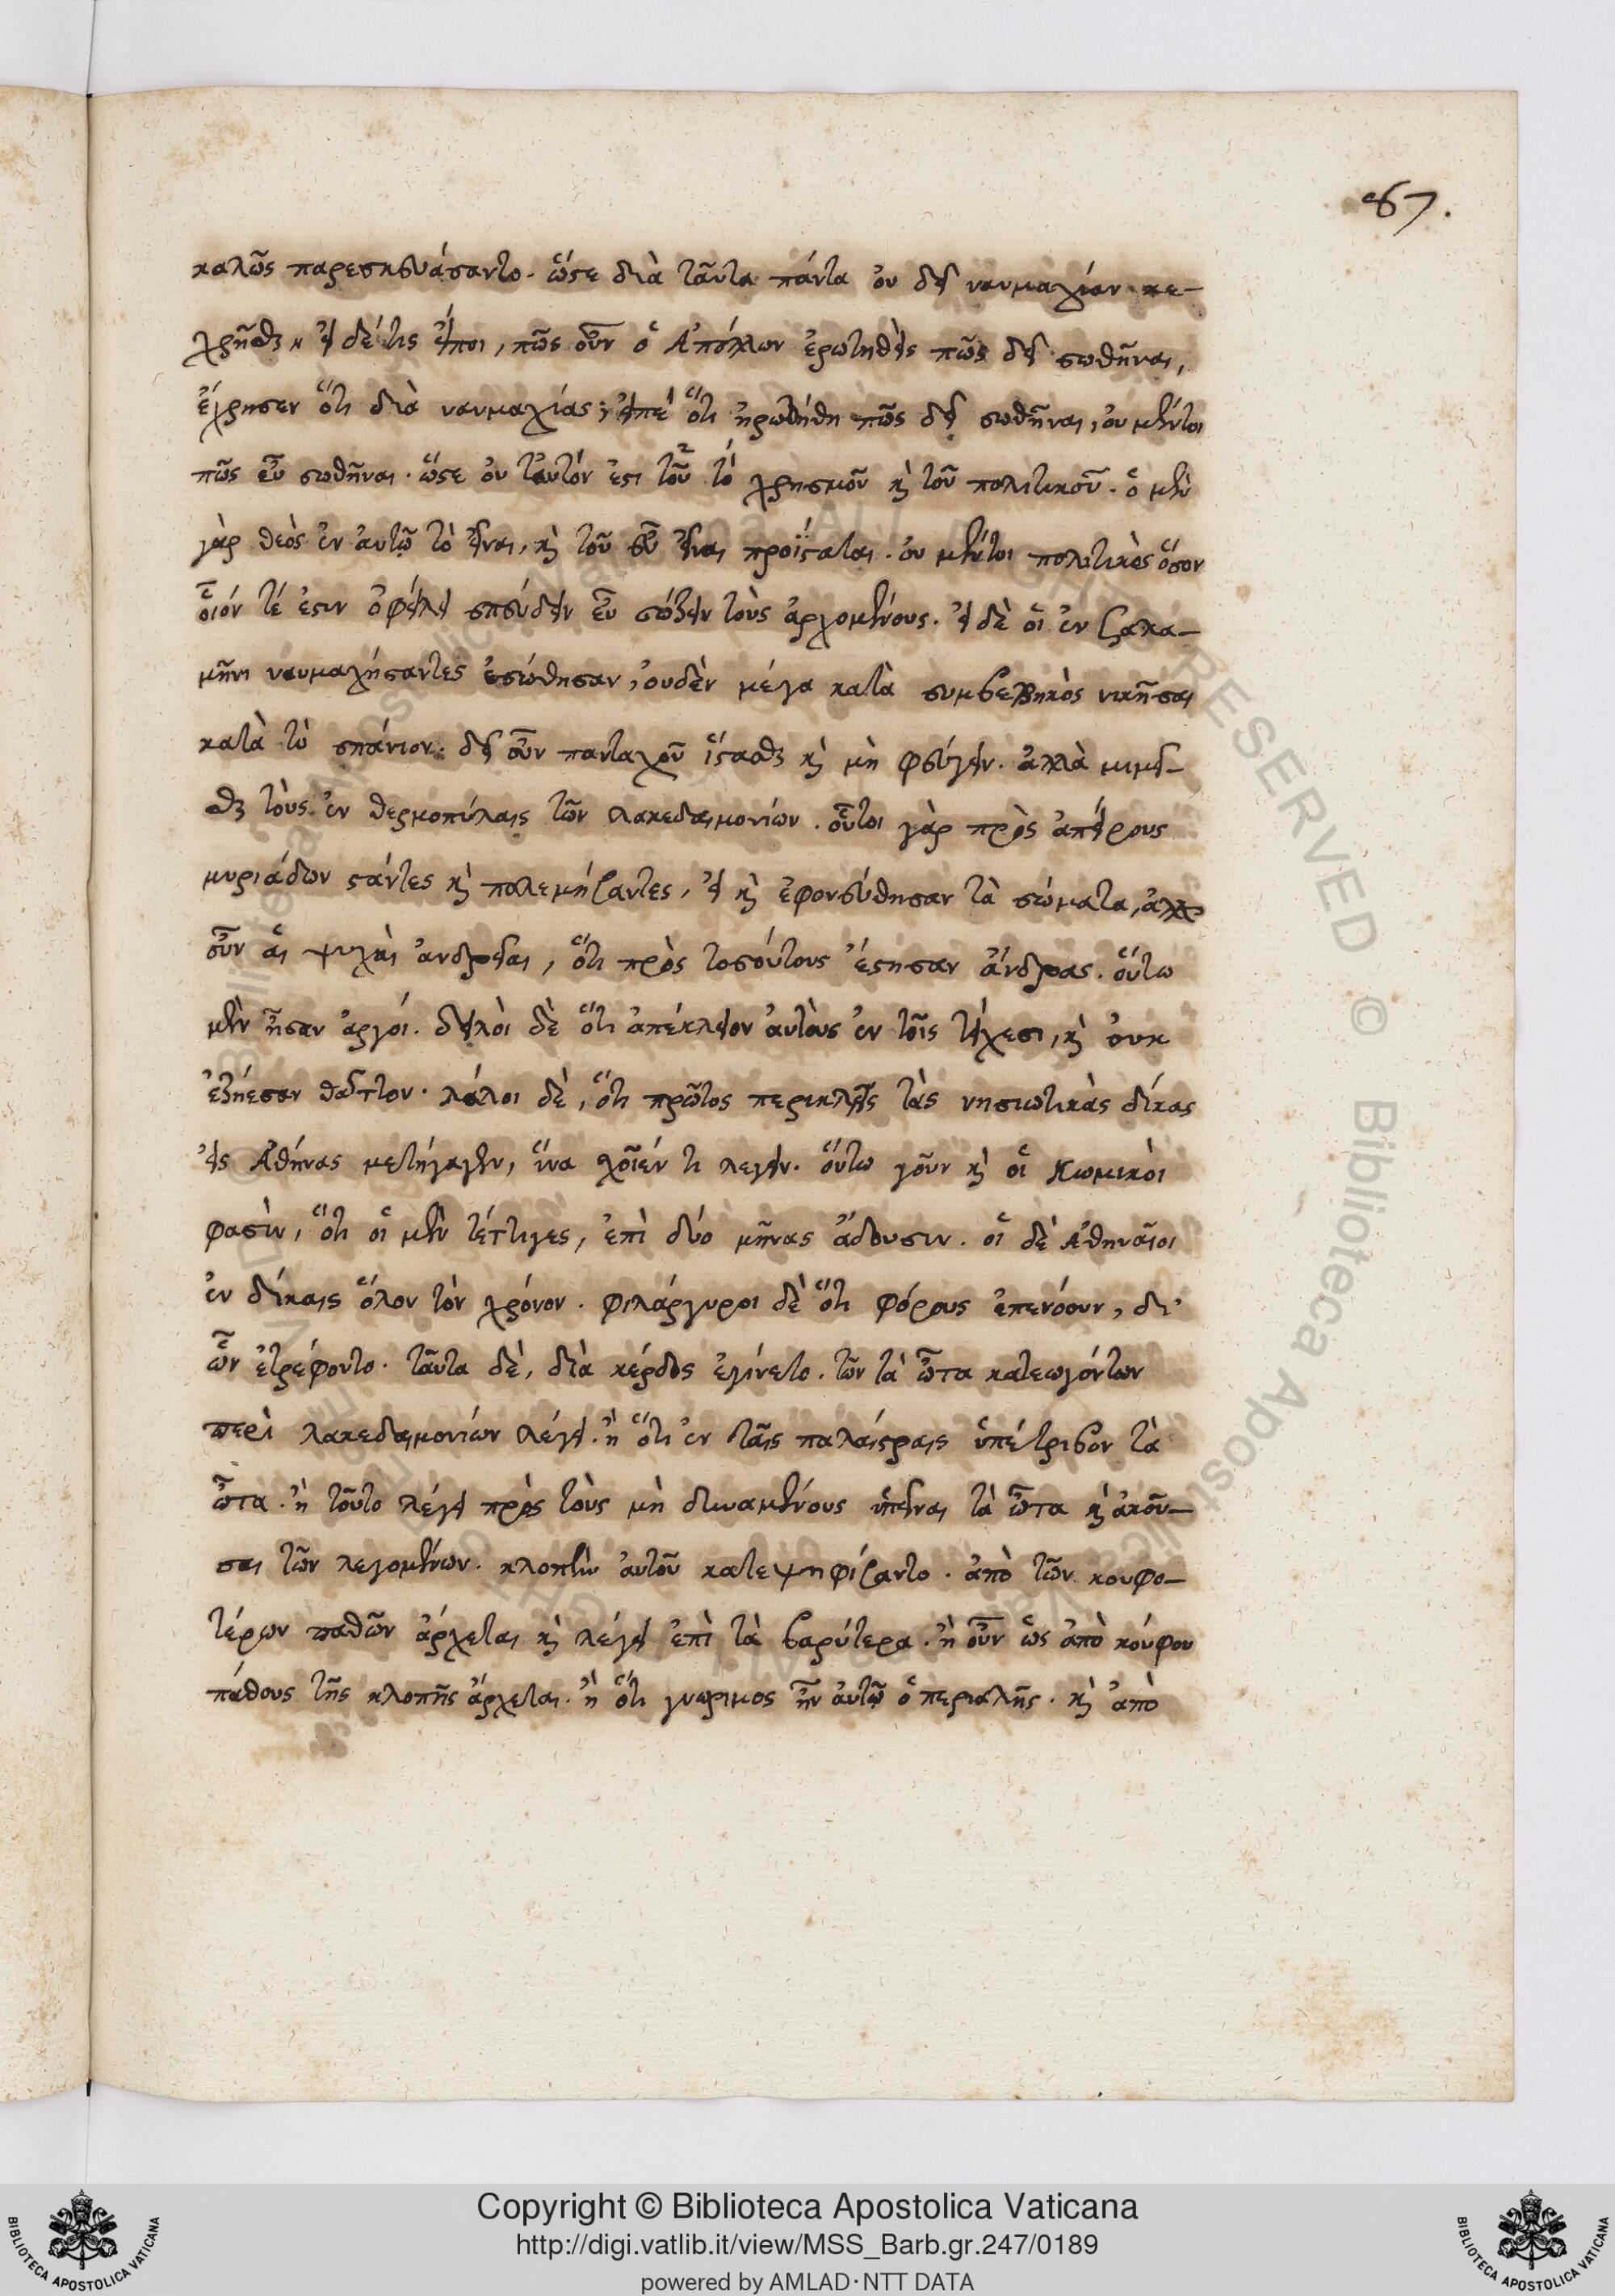 867.
καλῶς παρεσκευάσαντο. ὥστε διὰ ταῦτα πάντα οὐ δεῖ ναυμαχίαν κε-
χρῆσθαι εἰ δέ τις εἴποι, πῶς οὖν ὁ Ἀπόλλων ἐρωτηθεὶς πῶς δεῖ σωθῆναι,
ἔχρησεν ὅτι διὰ ναυμαχίας; εἰπὲ ὅτι ἠρωτήθη πῶς δεῖ σωθῆναι, οὐ μέντοι
πῶς εὖ σωθῆναι. ὥστε οὐ ταυτόν ἐστι τοῦ τό χρησμοῦ καὶ τοῦ πολιτικοῦ. ὁ μὲν
γὰρ θεὸς ἐν αὐτῷ τὸ εἶναι, καὶ τοῦ εὖ εἶναι προΐσταται. οὐ μέντοι πολιτικὸς ὅσον
οἷόν τέ ἐστιν ὀφείλει σπεύδειν εὖ σώζειν τοὺς ἀρχομένους. εἰ δὲ οἱ ἐν Σαλα-
μῖνι ναυμαχήσαντες ἐσώθησαν, οὐδὲν μέγα κατὰ συμβεβηκὸς νικῆσαι
κατὰ τὸ σπάνιον. δεῖ οὖν πανταχοῦ ἵστασθαι καὶ μὴ φεύγειν. ἀλλὰ μιμεῖ-
σθαι τοὺς ἐν θερμοπύλαις τῶν λακεδαιμονίων. οὗτοι γὰρ πρὸς ἀπείρους
μυριάδων στάντες καὶ πολεμήσαντες, εἰ καὶ ἐφονεύθησαν τὰ σώματα, ἀλλ'
οὖν αἱ ψυχαὶ ἀνδρεῖαι, ὅτι πρὸς τοσούτους ἔστησαν ἄνδρας. οὕτω
μὲν ἦσαν ἀργοί. δειλοὶ δὲ ὅτι ἀπέκλειον αὐτοὺς ἐν τοῖς τείχεσι, καὶ οὐκ
ἐξῄεσαν θᾶττον. λάλοι δὲ, ὅτι πρῶτος περικλῆς τὰς νησιωτικὰς δίκας
εἰς Ἀθήνας μετήγαγεν, ἵνα ἔχοιέν τι λέγειν. οὕτω γοῦν καὶ οἱ Κωμικοὶ
φασὶν, ὅτι οἱ μὲν τέττιγες, ἐπὶ δύο μῆνας ᾄδουσιν. οἱ δὲ Ἀθηναῖοι
ἐν δίκαις ὅλον τὸν χρόνον. φιλάργυροι δὲ ὅτι φόρους ἐπενόουν, δι'
ὧν ἐτρέφοντο. ταῦτα δὲ, διὰ κέρδος ἐγίνετο. τῶν τὰ ὦτα κατεωγότων
περὶ λακεδαιμονίων λέγει. ἢ ὅτι ἐν ταῖς παλαίστραις ὑπέτριβον τὰ
ὦτα. ἢ τοῦτο λέγει πρὸς τοὺς μὴ δυναμένους ὑπεῖναι τὰ ὦτα καὶ ἀκοῦ-
σαι τῶν λεγομένων. κλοπὴν αὐτοῦ κατεψηφίσαντο. ἀπὸ τῶν κουφο-
τέρων παθῶν ἄρχεται καὶ λέγει ἐπὶ τὰ βαρύτερα. ἢ οὖν ὡς ἀπὸ κούφου
πάθους τῆς κλοπῆς ἄρχεται. ἢ ὅτι γνωριμος ἦν αὐτῷ ὁ περικλῆς. καὶ ἀπὸ
Copyright © Biblioteca Apostolica Vaticana
http://digi.vatlib.it/view/MSS_Barb.gr.247/0189
powered by AMLAD·NTT DATA